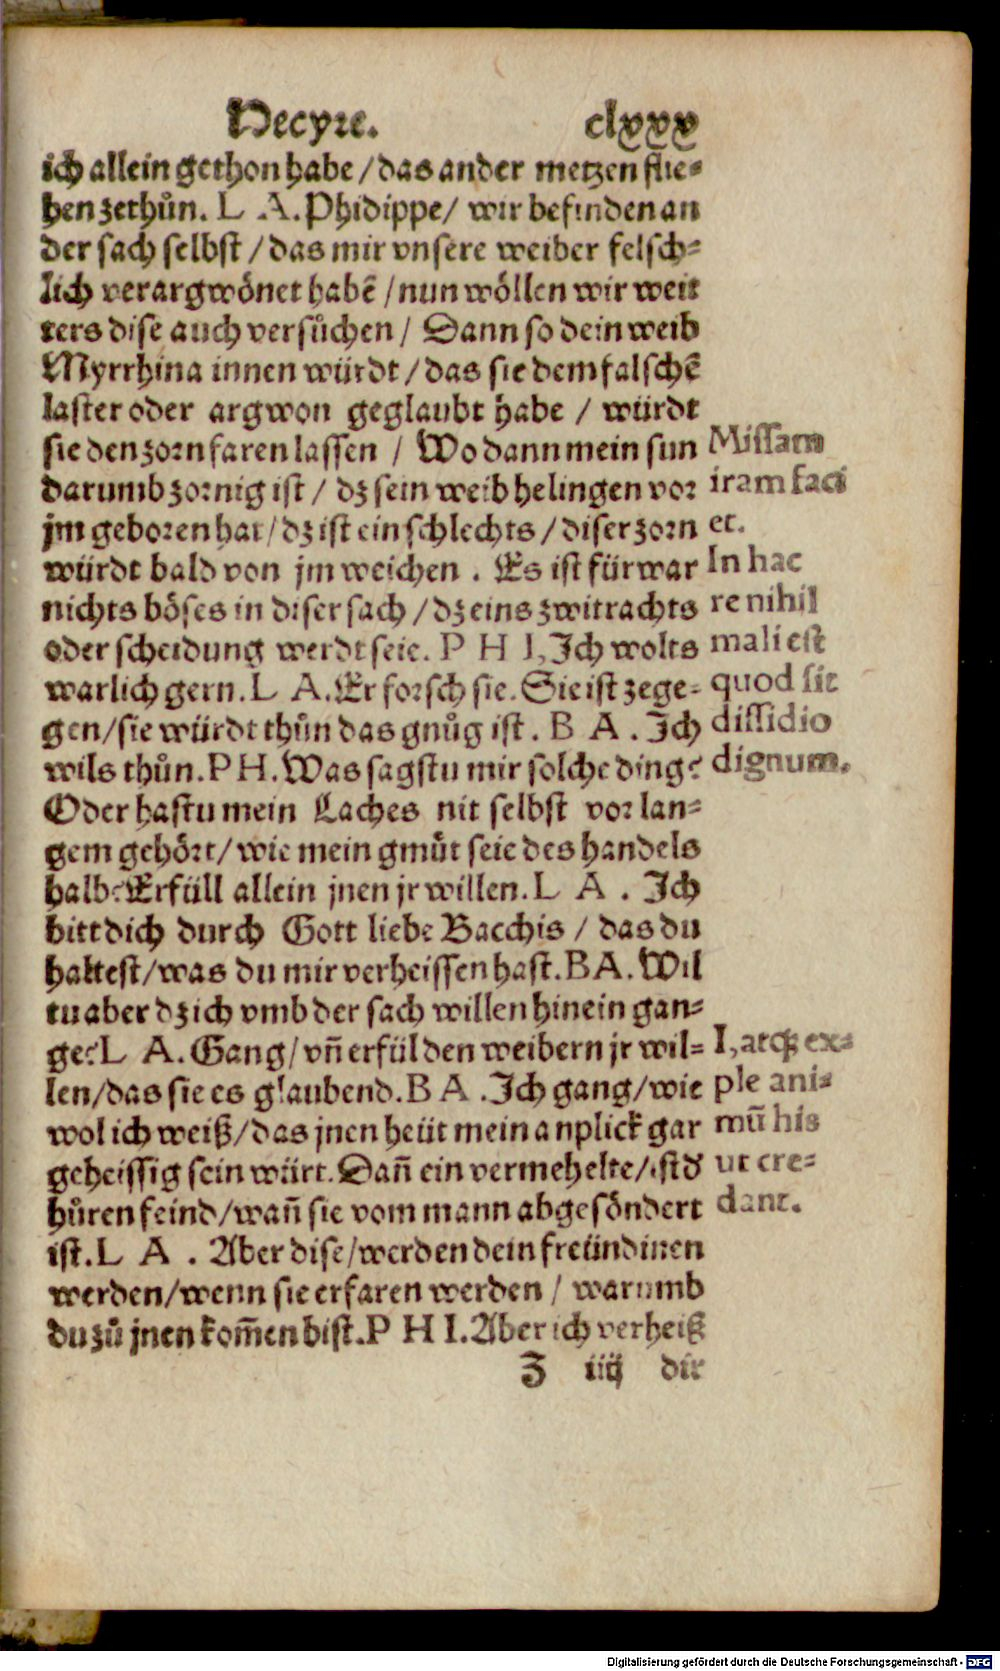 Hecyre. clxxx
ich allein gethon habe / das ander metzen flie⸗
hen zethůn. L A. Phidippe / wir befinden an
der sach selbst / das mir vnsere weiber felsch⸗
lich verargwönet habē / nun wöllen wir weit
ters dise auch versůchen / Dann so dein weib
Myrrhina innen würdt / das sie dem falschē
laster oder argwon geglaubt habe / würdt
sie den zorn faren lassen / Wo dann mein sun
darumb zornig ist / dz sein weib helingen vor
jm geboren hat / dz ist ein schlechts / diser zorn
würdt bald von jm weichen . Es ist fürwar
nichts böses in diser sach / dz eins zwitrachts
oder scheidung werdt seie. P H I, Ich wolts
warlich gern. L A. Erforsch sie. Sie ist zege⸗
gen / sie würdt thůn das gnůg ist . B A . Ich
wils thůn. P H. Was sagstu mir solche ding?
Oder hastu mein Laches nit selbst vor lan⸗
gem gehört / wie mein gmůt seie des handels
halb? Erfüll allein jnen jr willen. L A . Ich
bitt dich durch Gott liebe Bacchis / das du
haltest / was du mir verheissen hast. B A. Wil
tu aber dz ich vmb der sach willen hinein gan⸗
ge? L A. Gang / vn̄ erfül den weibern jr wil⸗
len / das sie es glaubend. B A . Ich gang / wie
wol ich weiß / das jnen heüt mein anplick gar
geheissig sein würt. Dan̄ ein vermehelte / ist d'
hůren feind / wan̄ sie vom mann abgesöndert
ist. L A . Aber dise / werden dein freündinen
werden / wenn sie erfaren werden / warumb
du zů jnen kom̄en bist. P H I. Aber ich verheiß
Z iiij dir
Missam
iram faci
et.
In hac
re nihil
mali est
quod sit
dissidio
dignum.
I, atq; ex⸗
ple ani⸗
mū his
ut cre⸗
dant.
Digitalisierung gefördert durch die Deutsche Forschungsgemeinschaft - DFG